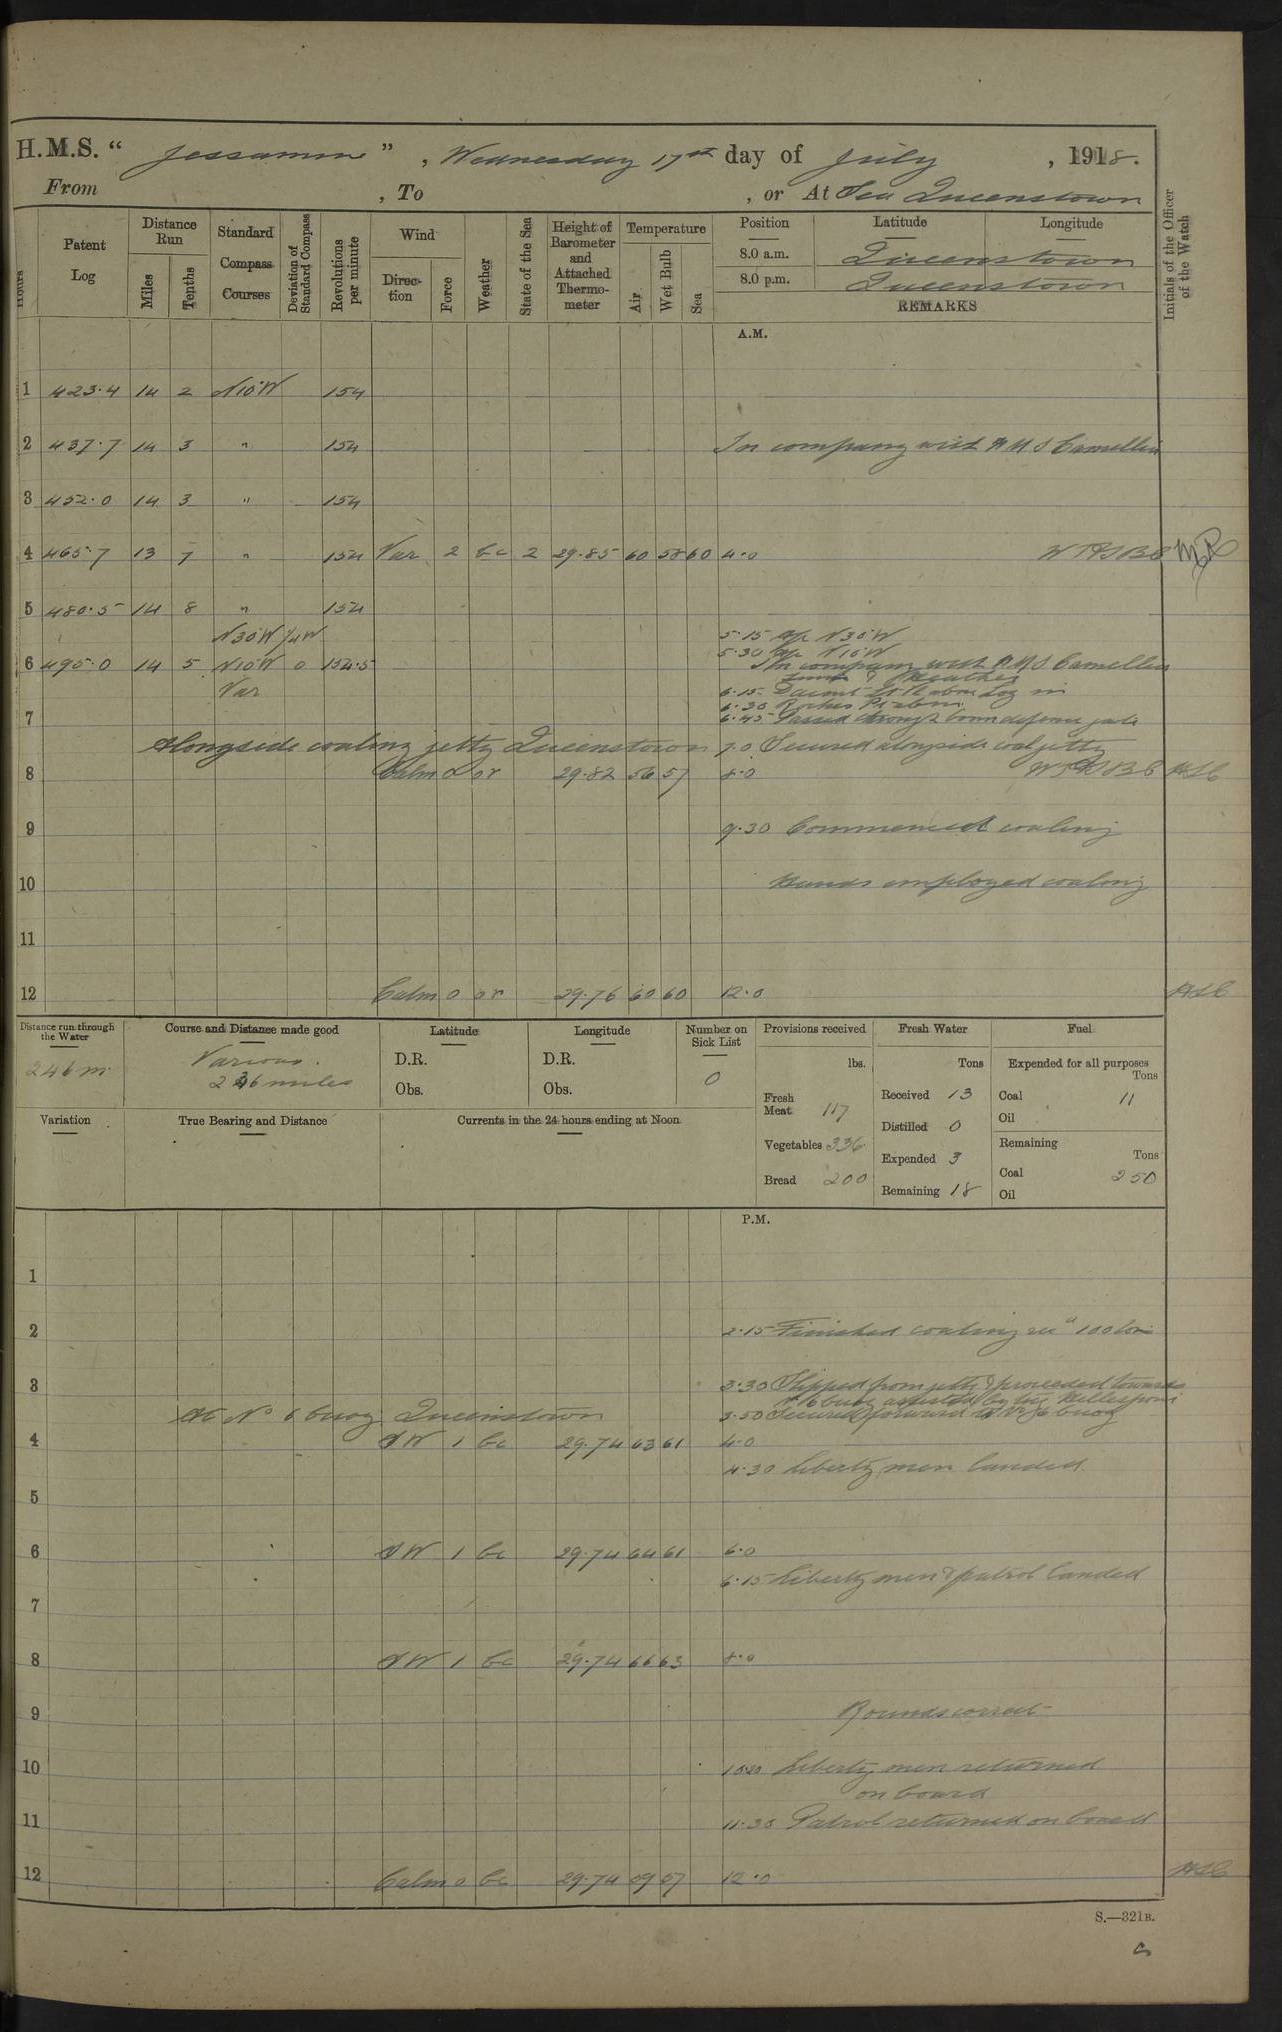 H.M.S. " Jessamine ", Wednesday 17th day of July, 1918.
From , To , or At Sea Queenstown
Hours
Patent Log
Distance Run
Miles
Tenths
Standard Compass Courses
Deviation of Standard Compass
Revolutions per minute
Wind
Direction
Force
Weather
State of the Sea
Height of Barometer and Attached Thermometer
Temperature
Air
Wet Bulb
Sea
Position Latitude Longitude
8.0 a.m. Queenstown
8.0 p.m. Queenstown
REMARKS
Initials of the Officer of the Watch
A.M.
1 423.4 14 2 N10W 154
2 437.7 14 3 " 154 In company with HMS Camellia
3 452.0 14 3 " 154
4 465.7 13 7 " 154 Var 2 bc 2 29.85 60 58 60 4.0
5 480.5 14 8 " 154
N30W 5.15 a/c N30W
5.30 a/c N10W
6 495.0 14 5 N10W 0 154.5 In company with HMS Camellia
Var 6.15 Daunt Lt R abm Log in
6.30 Roches Pt abm
7 6.45 Passed through boom defence gate
Alongside coaling jetty Queenstown 7.0 Secured alongside coal jetty
8 Calm 0 or 29.82 56 57 8.0
9 9.30 Commenced coaling
10 Hands employed coaling
11
12 Calm 0 or 29.76 60 60 12.0
Distance run through the Water
246 m.
Course and Distance made good
Various.
246 miles
Latitude
D.R.
Obs.
Longitude
D.R.
Obs.
Number on Sick List
0
Provisions received
lbs.
Fresh Meat 117
Vegetables 336
Bread 200
Fresh Water
Tons
Received 13
Distilled 0
Expended 3
Remaining 18
Fuel
Expended for all purposes
Tons
Coal 11
Oil
Remaining
Tons
Coal 250
Oil
Variation
True Bearing and Distance
Currents in the 24 hours ending at Noon
P.M.
1
2 2.15 Finished coaling 100 tons
3 3.30 Slipped from jetty & proceeded towards
No 6 buoy assisted by tug Hellespont
At No 6 buoy Queenstown 3.50 Secured forward to No 6 buoy
4 SW 1 bc 29.74 63 61 4.0
4.30 Liberty men landed
5
6 SW 1 bc 29.74 64 61 6.0
6.15 Liberty men & patrol landed
7
8 SW 1 bc 29.74 66 63 8.0
9 Rounds correct
10 10.20 Liberty men returned
on board
11 11.30 Patrol returned on board
12 Calm 0 bc 29.74 59 57 12.0
S.—321B.